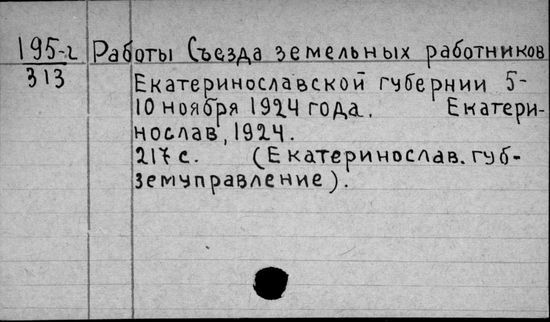 195-г Работы Съезда земельных работников
313 Екатеринославской губернии 5-
10 ноября 1924 года. Екатери-
нослав, 1924.
217 с. (Екатеринослав. губ-
земуправление).